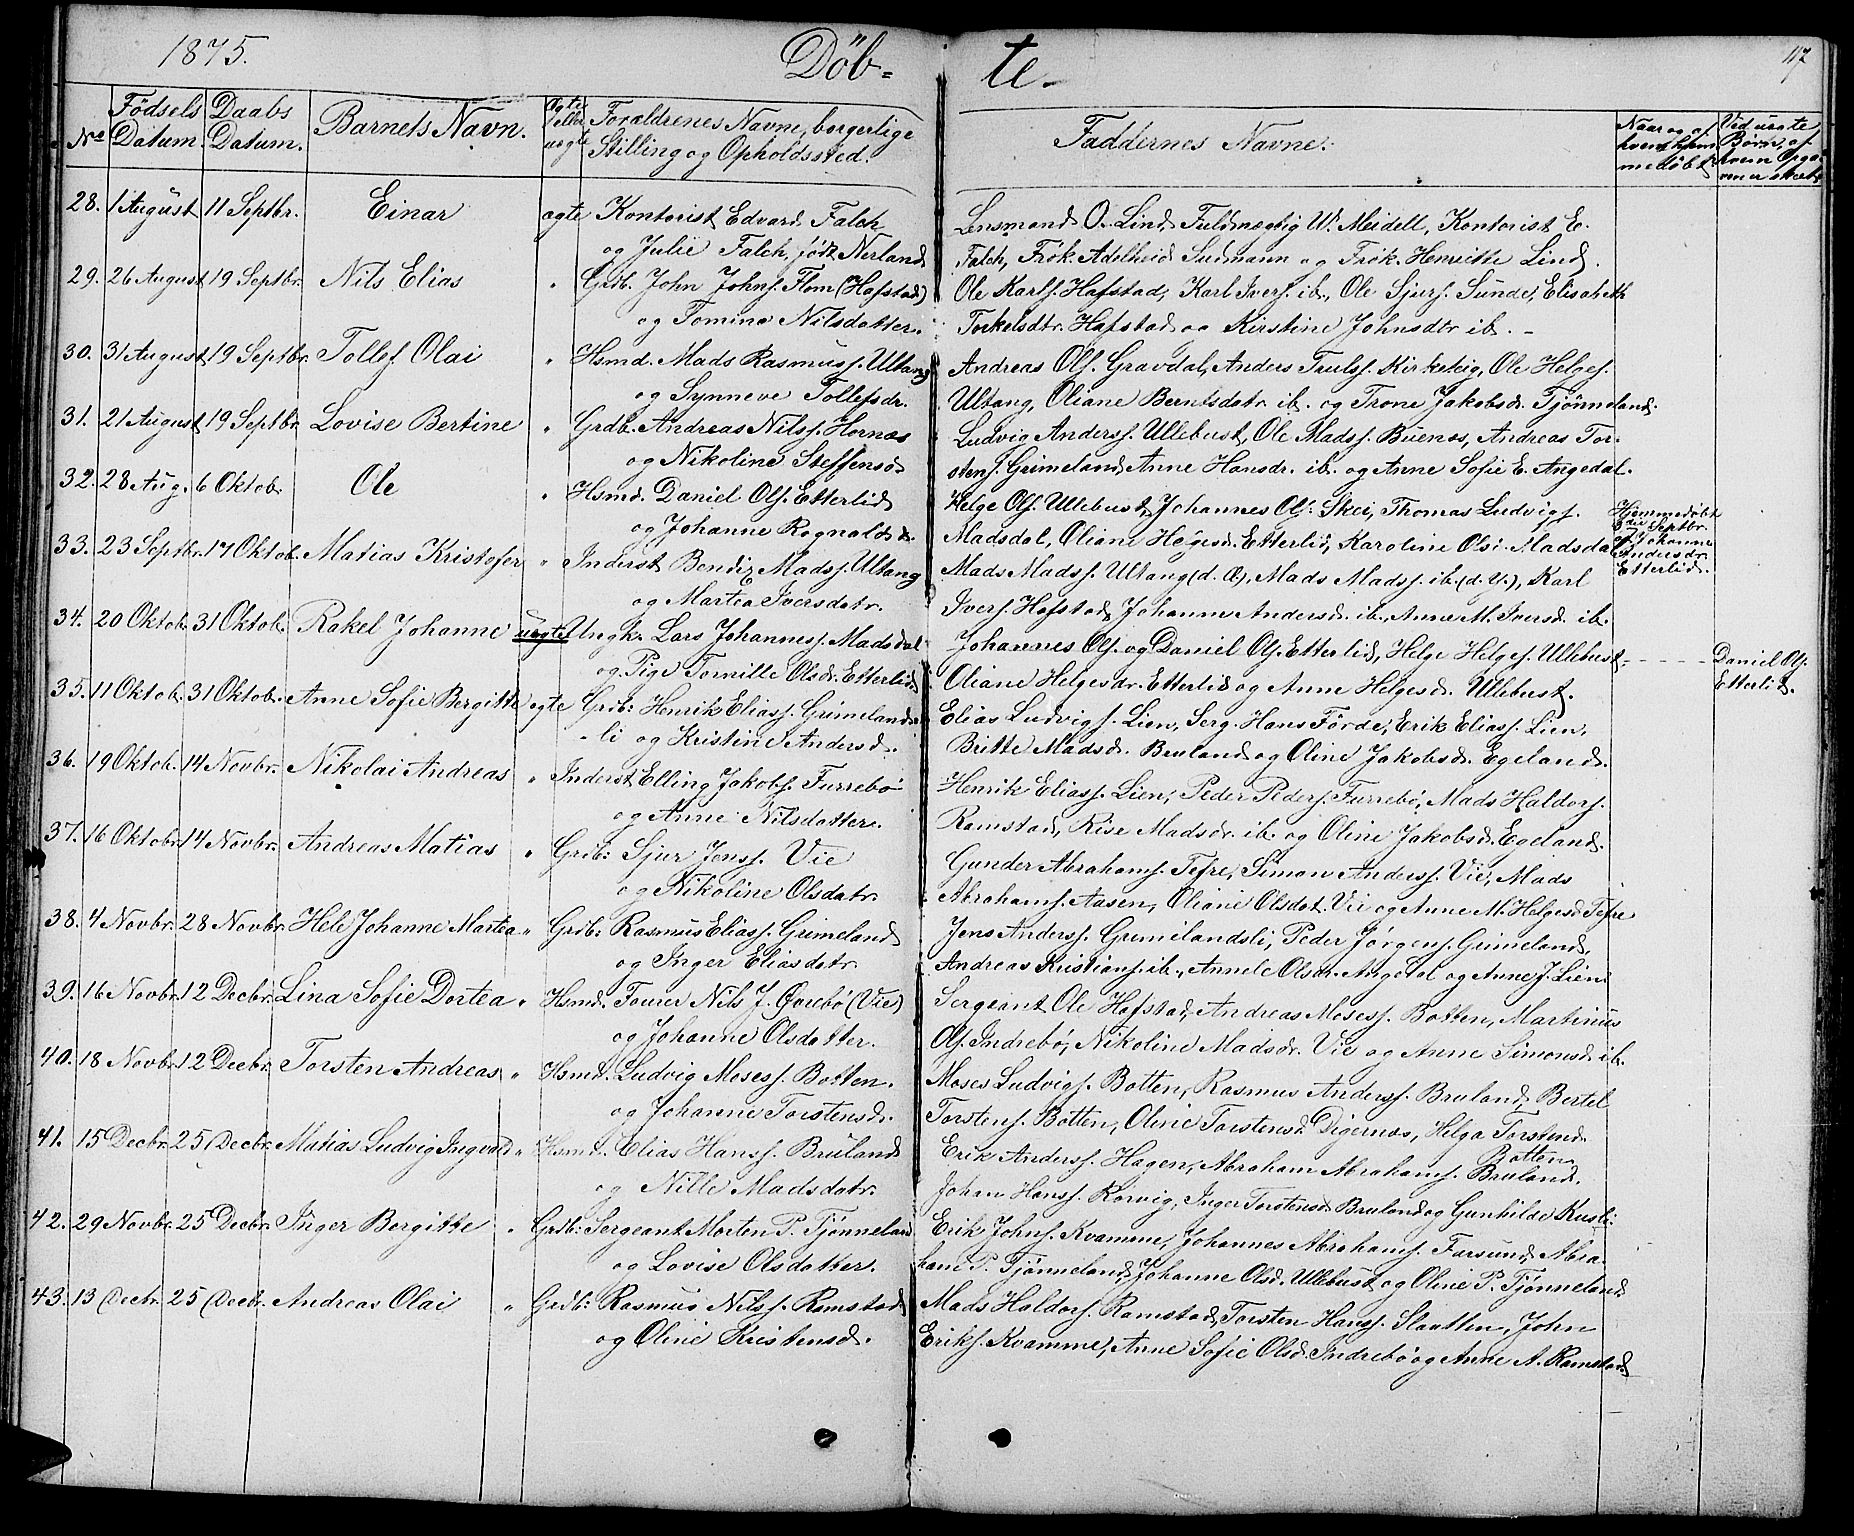 1875.
Döb-
te-
117
No
Födsels Datum.
Daabs Datum.
Barnets Navn.
Ægte eller uægte
Forældrenes Navne, borgerlige
Stilling og Opholdssted.
Faddernes Navne.
Naar og af hvem hjemmedøbt
Ved uægte Børn, af hvem Opga-
28. 1 August 11 Septbr. Einar ægte Kontorist Edvard Falch
og Julie Falch, født Nerland
Lensmand O. Lind, Fuldmægtig W. Meidell, Kontorist E.
Falch, Frök. Adelheid Sudmann og Frök. Henriette Lind.
29. 26 August 19 Septbr. Nils Elias " Grdb. John Johns. Flom (Hafstad)
og Tomine Nilsdatter.
Ole Karls. Hafstad, Karl Ivers. ib., Ole Sjurs. Sunde, Elisabeth
Torkelsdtr. Hafstad og Kirstine Johnsdtr ib. -
30. 31 August 19 Septbr. Tollef Olai " Hsmd. Mads Rasmuss. Ultang
og Synneve Tollefsdr.
Andreas Ols. Gravdal, Anders Truls. Kirketeig, Ole Helges.
Ultang, Oliane Berntsdatr ib. og Trone Jakobsdr. Tjønneland.
31. 21 August 19 Septbr. Lovise Bertine " Grdb. Andreas Nilss. Hornæs
og Nikoline Steffensd.
Ludvig Anderss. Ullebust, Ole Madss. Buenæs, Andreas Tor-
stens. Grimeland, Anne Hansdr. ib. og Anne Sofie E. Angedal.
32. 28 Aug. 6 Oktob. Ole " Hsmd. Daniel Ols. Etterlid
og Johanne Rognaldsdr.
Helge Ols. Ullebust, Johannes Ols. Skei, Thomas Ludvigs.
Madsdal, Oliane Helgesd. Etterlid, Karoline Olsd. Madsdal
Hjemmedøbt
3die Septbr.
af Johanne
Andersdr.
Etterlid.
33. 23 Septbr. 17 Oktob. Matias Kristofer " Inderst Bendix Madss. Ultang
og Martea Iversdatr.
Mads Madss. Ultang (d. Æ), Mads Madss. ib. (d. Y.), Karl
Ivers. Hafstad, Johanne Andersd. ib., Anne M. Iversd. ib.
34. 20 Oktob. 31 Oktob. Rakel Johanne uægte Ungk. Lars Johanness. Madsdal
og Pige Tomille Olsdr. Etterlid.
Johannes Ols. og Daniel Ols. Etterlid, Helge Helges. Ullebust,
Oliane Helgesdr. Etterlid og Anne Helgesd. Ullebust.
Daniel Ols.
Etterlid.
35. 11 Oktob. 31 Oktob. Anne Sofie Bergitte ægte Grdb: Henrik Eliass. Grimelands-
li og Kristine Andersd.
Elias Ludvigs. Lien, Serg. Hans Förde, Erik Eliass. Lien,
Britte Madsd. Bruland og Oline Jakobsd. Egeland.
36. 19 Oktob. 14 Novbr. Nikolai Andreas " Inderst Elling Jakobs. Furrebö
og Anne Nilsdatter.
Henrik Eliass. Lien, Peder Peders. Furrebö, Mads Haldors.
Ramstad, Rise Madsdr. ib. og Oline Jakobsd. Egeland.
37. 16 Oktobr. 14 Novbr. Andreas Matias " Grdb: Sjur Jenss. Vie
og Nikoline Olsdatr.
Gunder Abrahams. Tefre, Simon Anderss. Vie, Mads
Abrahams. Aasen, Oliane Olsdat. Vie og Anne M. Helgesd. Tefre
38. 4 Novbr. 28 Novbr. Hele Johanne Martea " Grdb: Rasmus Eliass. Grimeland
og Inger Eliasdatr.
Jens Anderss. Grimelandsli, Peder Jørgens. Grimeland,
Andreas Kristians. ib., Annele Olsdr. Angedal og Anne J. Lien.
39. 16 Novbr. 12 Decbr. Lina Sofie Dortea " Hsmd. Fourer Nils J. Øvrebö (Vie)
og Johanne Olsdatter.
Sergeant Ole Hafstad, Andreas Moses. Botten, Martinus
Ols. Indrebö, Nikoline Madsdr. Vie og Anne Simonsd. ib.
40. 18 Novbr. 12 Decbr. Torsten Andreas " Hsmd. Ludvig Moses. Botten.
og Johanne Torstensd.
Moses Ludvigs. Botten, Rasmus Anderss. Bruland, Bertel
Torstens. Botten, Oline Torstensd. Digernæs, Helga Torstensd.
Botten
41. 15 Decbr. 25 Decbr. Matias Ludvig Ingvald " Hsmd. Elias Hanss. Bruland
og Nille Madsdatr.
Erik Anderss. Hagen, Abraham Abrahams. Bruland,
Johan Hanss. Korvig, Inger Torstensd. Bruland og Gunhilde Kusli.
42. 29 Novbr. 25 Decbr. Inger Bergitte " Grdb: Sergeant Morten P. Tjønneland
og Lovise Olsdatter.
Erik Johns. Kvamme, Johannes Abrahams. Farsund, Abra-
ham P. Tjønneland, Johanne Olsd. Ullebust og Oline P. Tjønneland
43. 13 Decbr. 25 Decbr. Andreas Olai " Grdb: Rasmus Nilss. Ramstad
og Oline Kristensd.
Mads Haldors. Ramstad, Torsten Hanss. Slaatten, John
Eriks. Kvamme, Anne Sofie Olsd. Indrebö og Anne A. Ramstad